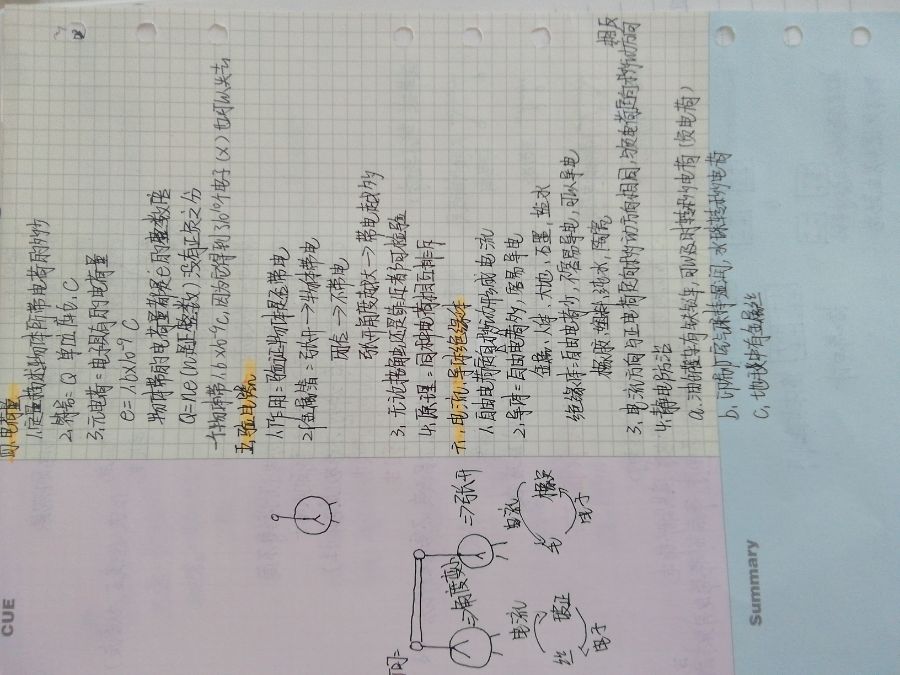 四、电荷量
1.定量描述物体所带电荷的多少
2.符号:Q 单位:库 C
3.元电荷=电子具有的电荷量
e=1.6×10⁻¹⁹ C
物体带的电荷量都是e的整数倍
Q=ne (n是正整数) 没有正负之分
一个物体带1.6×10⁻⁹C,因为它得到 3×10¹⁰个电子(×) 也可以失去
五、验电器
1.作用:验证物体是否带电
2.金属箔:张开→物体带电
闭合→不带电
张开角度越大→带电越多
3.无论接触正还是负电都可检验
4.原理:同种电荷相互排斥
六、电流,导体绝缘体
1.自由电荷定向移动形成电流
2.导体=自由电荷多,容易导电
金属,人体,大地,石墨,盐水
绝缘体:自由电荷少,不容易导电,可以导电
橡胶,塑料,纯水,陶瓷
3.电流方向与正电荷定向移动方向相同,与负电荷定向移动方向相反
4.静电防治
a.油罐车有软铁链,可以及时转移电荷(负电荷)
b.印刷厂空气保持湿润,水珠转移电荷
c.地毯中有金属丝
CUE
=>角度变小
=>张开
电流
丝
玻正
电子
电流
毛
橡负
电子
Summary